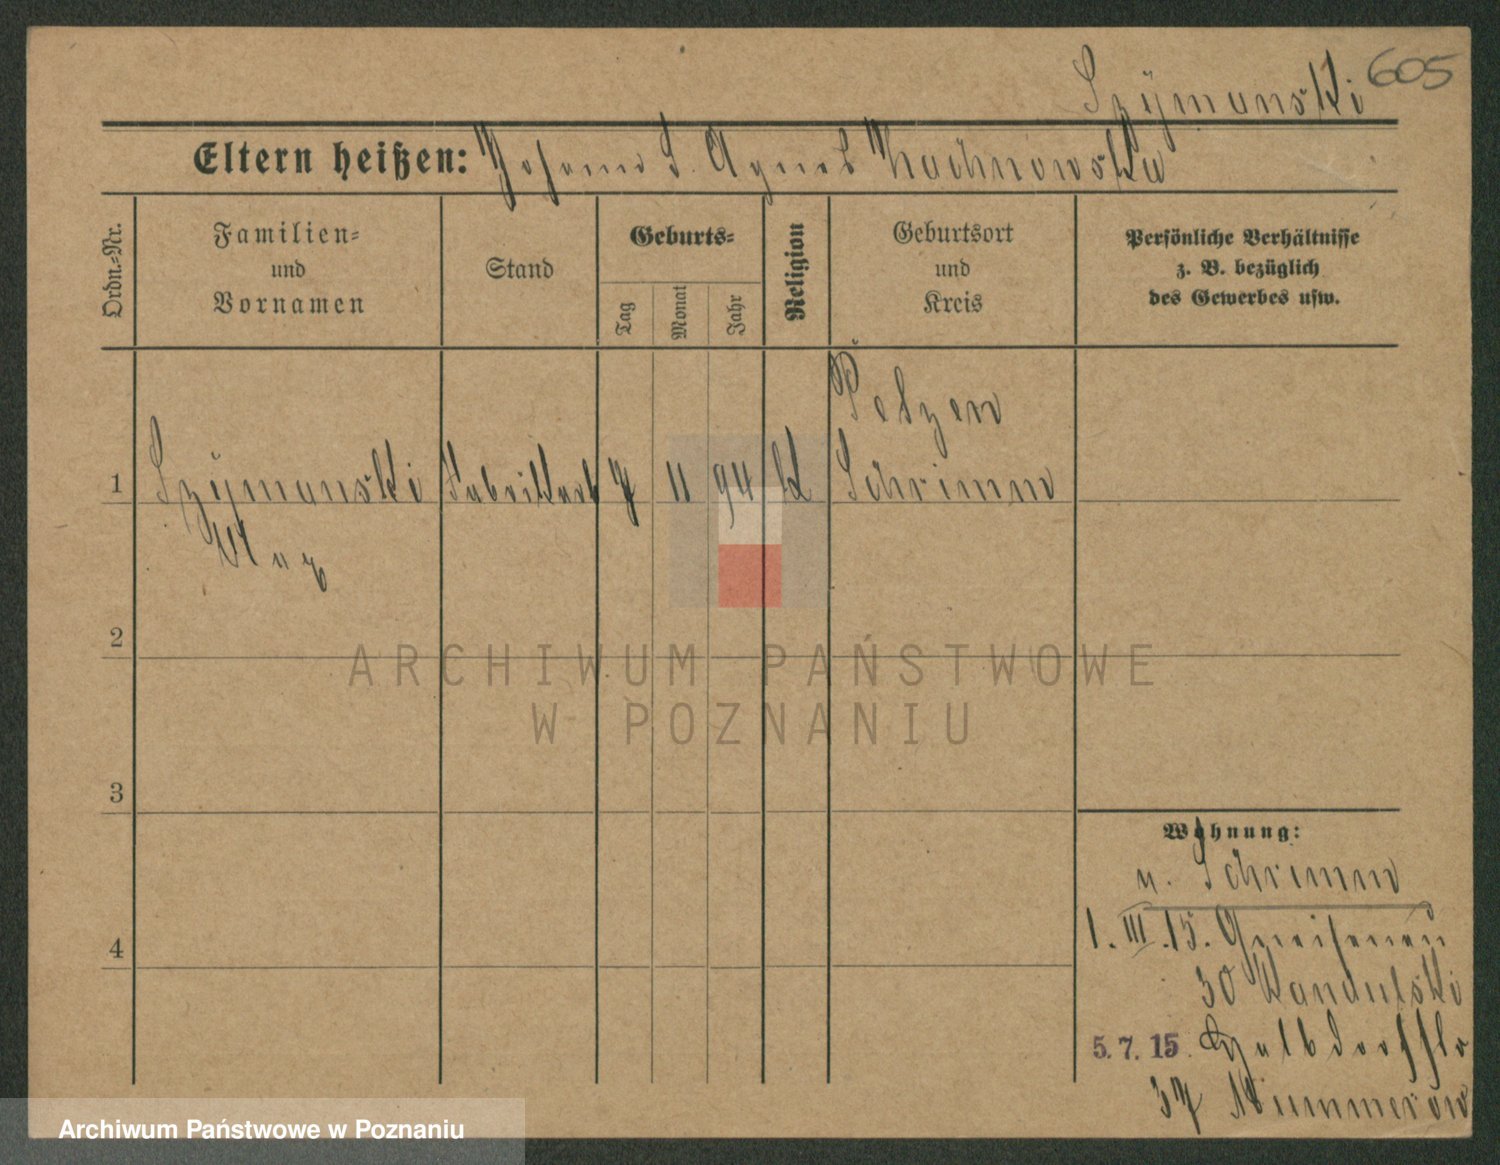 605
Szymanski
Eltern heißen: Johann S. Agnes Kachnowska
Ordn.-Nr.
Familien-
und
Vornamen
Stand
Geburts-
Tag
Monat
Jahr
Religion
Geburtsort
und
Kreis
Persönliche Verhältnisse
z. B. bezüglich
des Gewerbes usw.
Pelzen
1 Szymanski Fabrikarb 7 11 94 K Schrimm
Max
2
3
4
ARCHIWUM PAŃSTWOWE
W POZNANIU
Wohnung:
n. Schrimm
1. III. 15. Gneisenau
30 Kandulski
5. 7. 15. Halbdorffstr
37 Kummerow
Archiwum Państwowe w Poznaniu